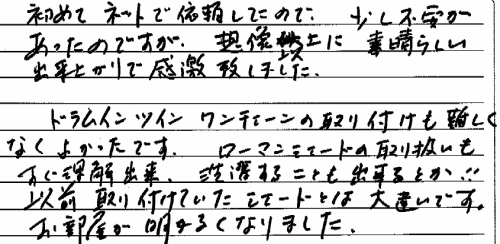 初めて ネットで依頼したので、少し不安が
あったのですが、想像以上に 素晴らしい
出来上がりで感激致しました。
ドラムインツイン ワンチェーンの取り付けも難しく
なくよかったです。ローマンシェードの取り扱いも
すぐ理解出来、洗濯することも出来るとか‥
以前取り付けていたシェードとは大違いです。
お部屋が明るくなりました。